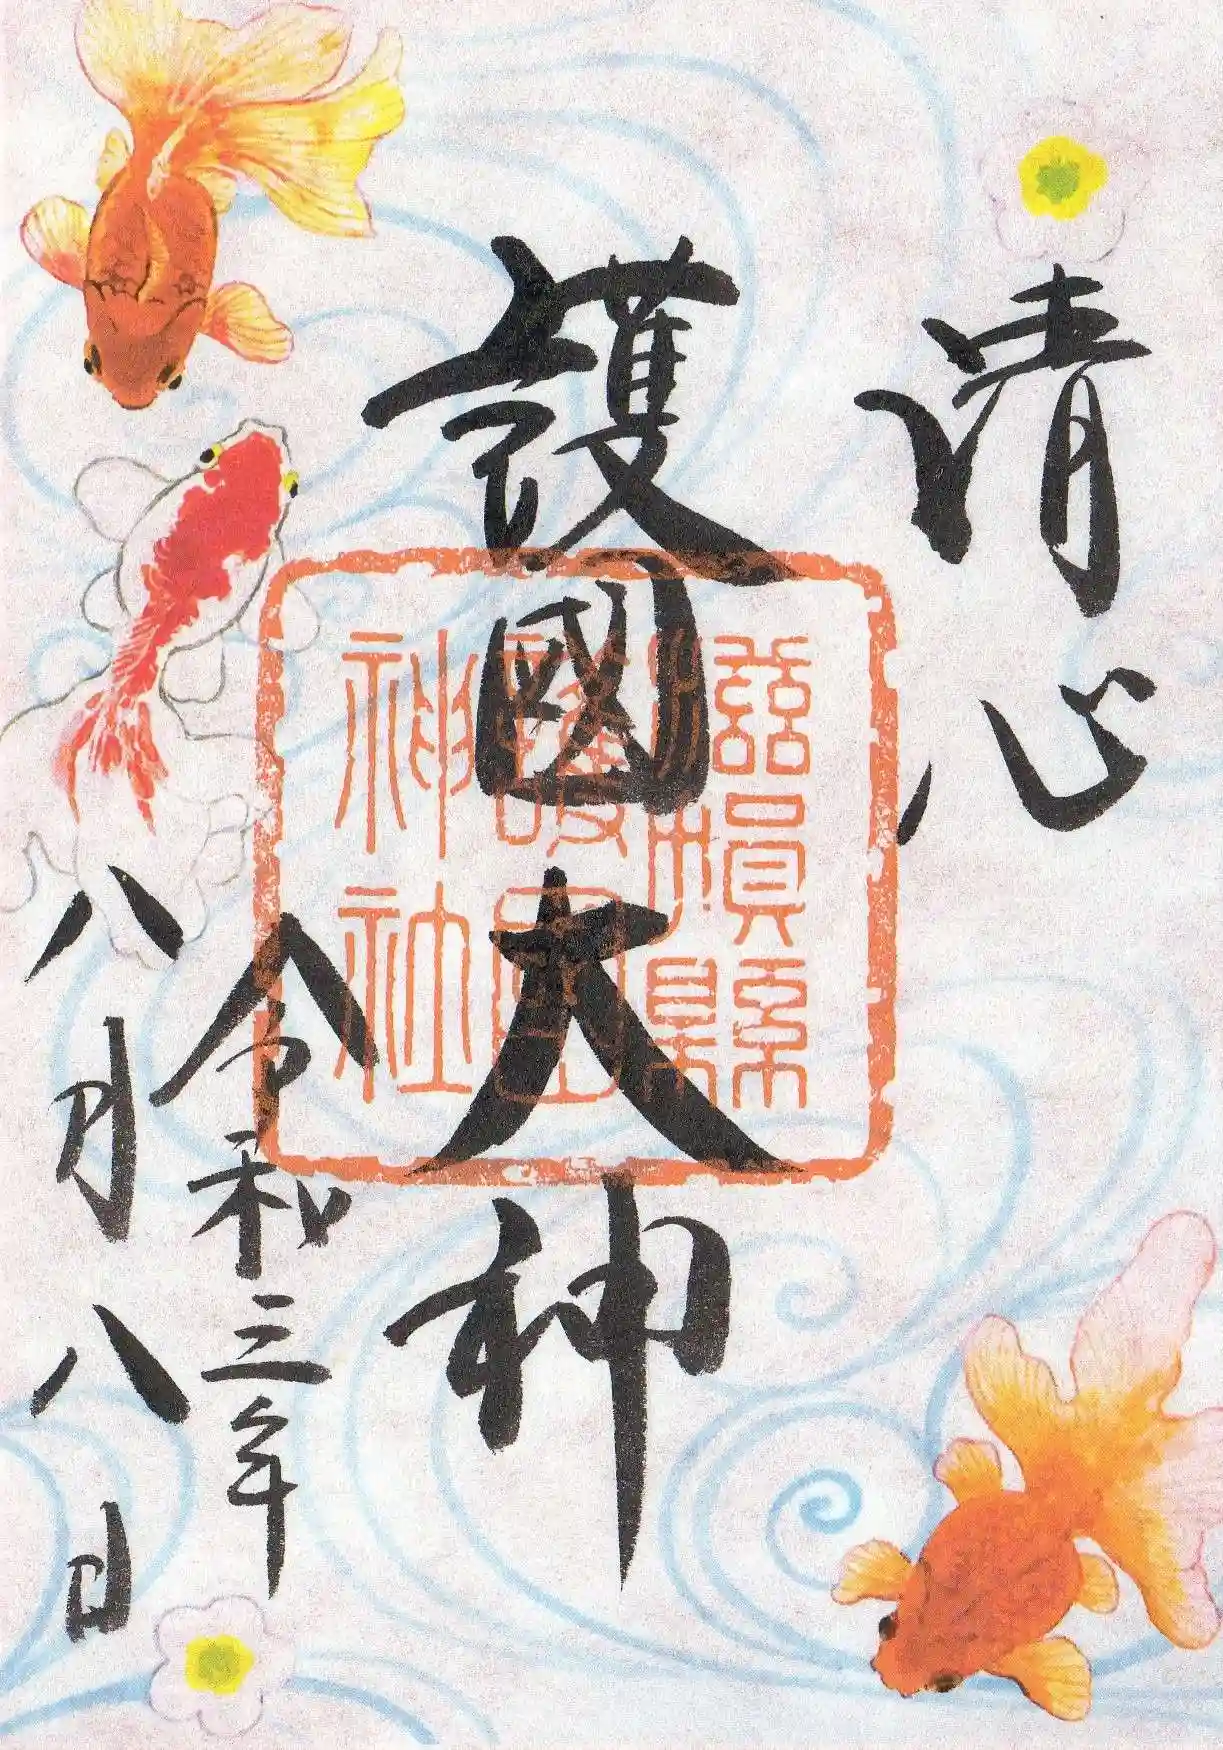 清心
護國大神
令和三年
八月八日
滋賀縣
護國
神社